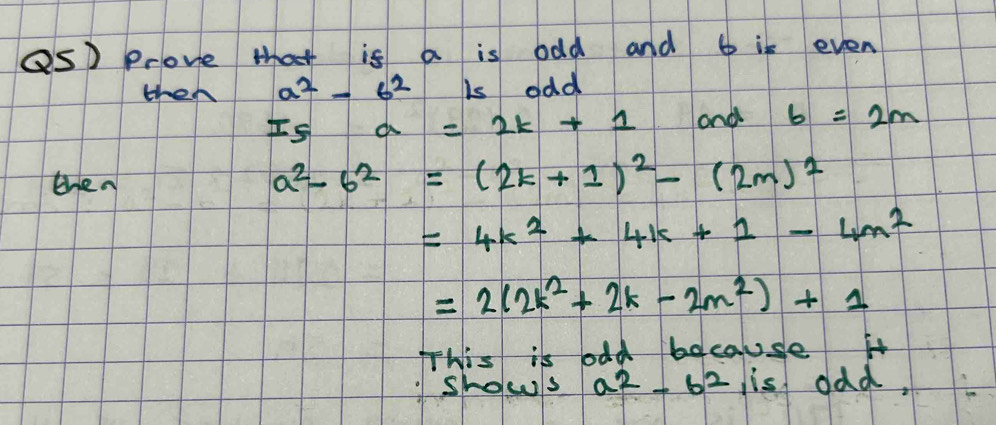 Q5) Prove that if a is odd and b is even
then a² - b² is odd
If a = 2k + 1 and b = 2m
then a² - b² = (2k + 1)² - (2m)²
= 4k² + 4k + 1 - 4m²
= 2(2k² + 2k - 2m²) + 1
This is odd because it
shows a² - b² is odd.